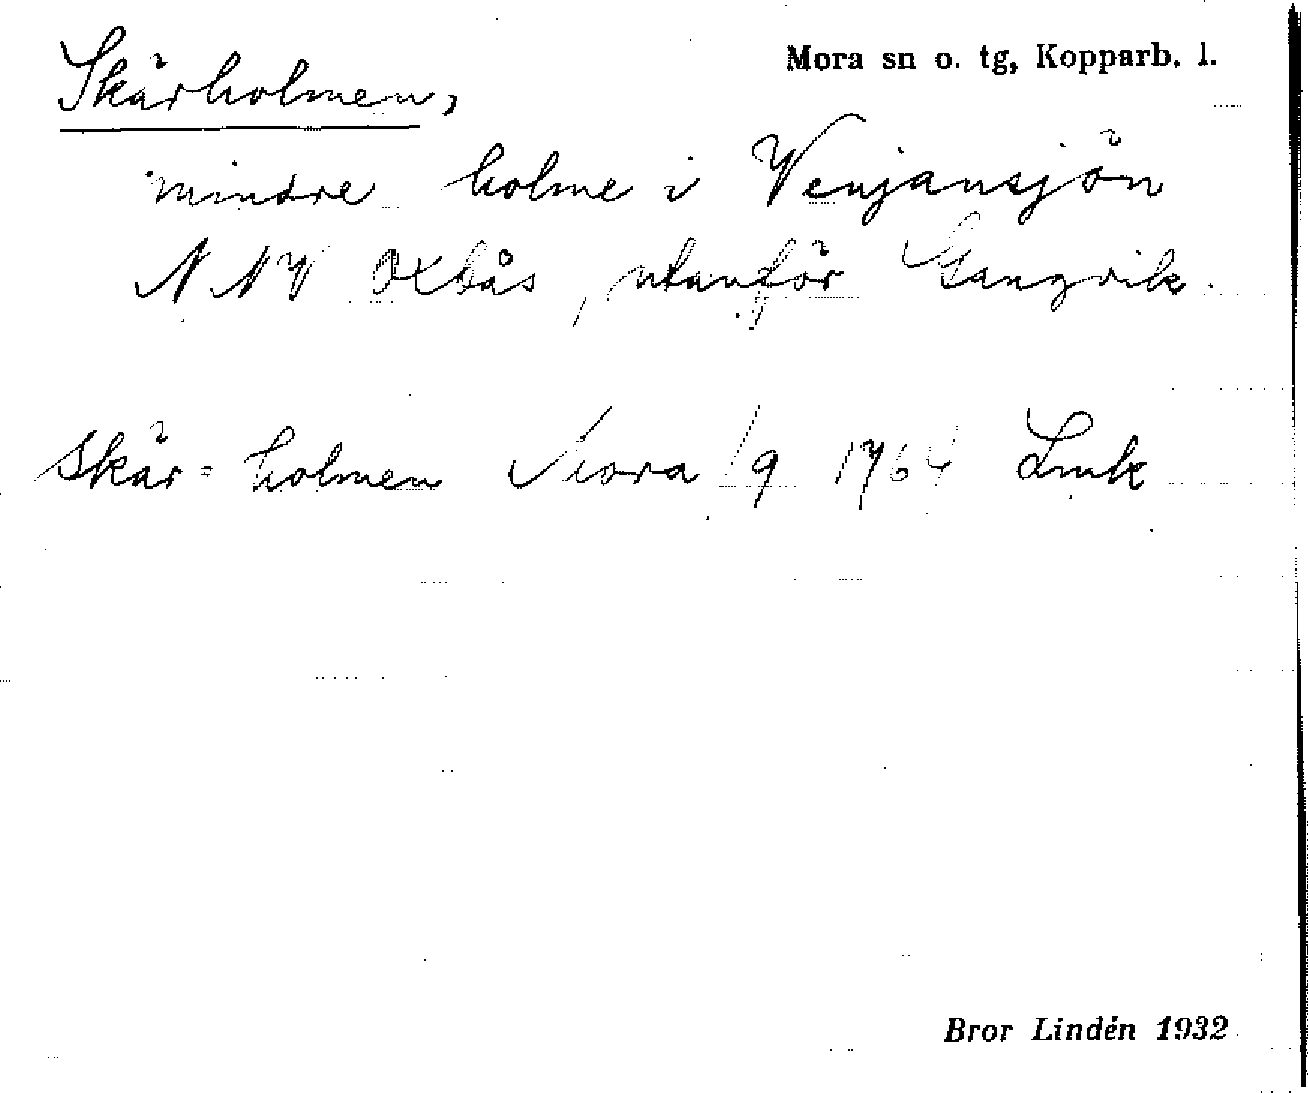 Mora sn o. tg, Kopparb. l.
Skärholmen,
mindre holme i Venjansjön
NNV Oxbås, utanför Gangvik.
Skär-holmen Mora 1/9 1764 Lmk
Bror Lindén 1932